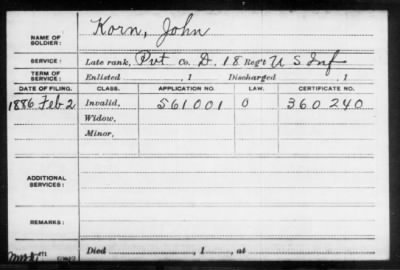 NAME OF SOLDIER: Korn, John
SERVICE: Late rank, Pvt Co. D, 18 Reg't U S Inf
TERM OF SERVICE: Enlisted , 1 Discharged , 1
DATE OF FILING. CLASS. APPLICATION NO. LAW. CERTIFICATE NO.
1886 Feb 2 Invalid, 561001 O 360240
Widow,
Minor,
ADDITIONAL SERVICES:
REMARKS:
Died , 1 , at